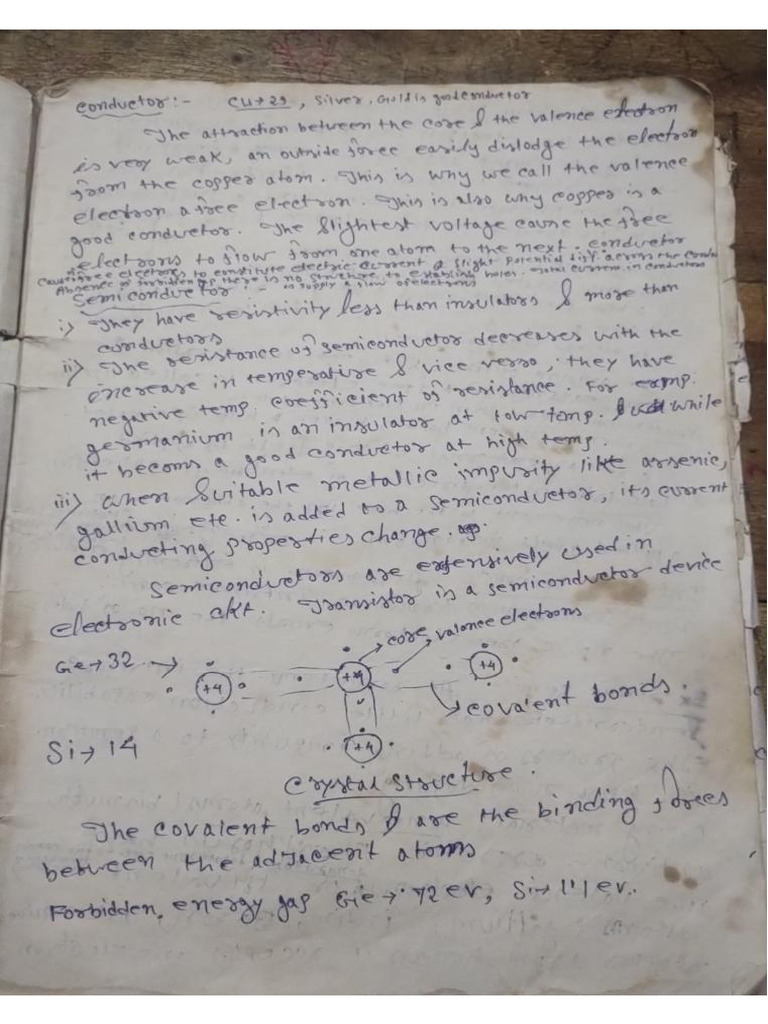 Conductor :- Cu→29, Silver, Gold is good conductor
The attraction between the core & the valence electron
is very weak, an outside force easily dislodge the electron
from the copper atom. This is why we call the valence
electron a free electron. This is also why copper is a
good conductor. The slightest voltage cause the free
electrons to flow from one atom to the next. conductor
free electrons to constitute electric current a slight potential diff. across the
Absence of forbidden there is no structure to establish holes. Total current in conductors
Semiconductor :- is supply a flow of electrons
i) They have resistivity less than insulators & more than
conductors
ii) The resistance of semiconductor decreases with the
increase in temperature & vice verso, they have
negative temp. coefficient of resistance. For exmp.
germanium is an insulator at low temp. while
it becoms a good conductor at high temp.
iii) when suitable metallic impurity like arsenic,
gallium etc. is added to a semiconductor, its current
conducting properties change.
Semiconductors are extensively used in
electronic ckt. Transistor is a semiconductor device
core, valence electrons
Ge→32 →
+4 +4 +4
covalent bonds.
Si→14
+4
Crystal structure.
The covalent bonds are the binding forces
between the adjacent atoms
Forbidden energy gap Ge→ .72 ev, Si→ 1.1 ev.